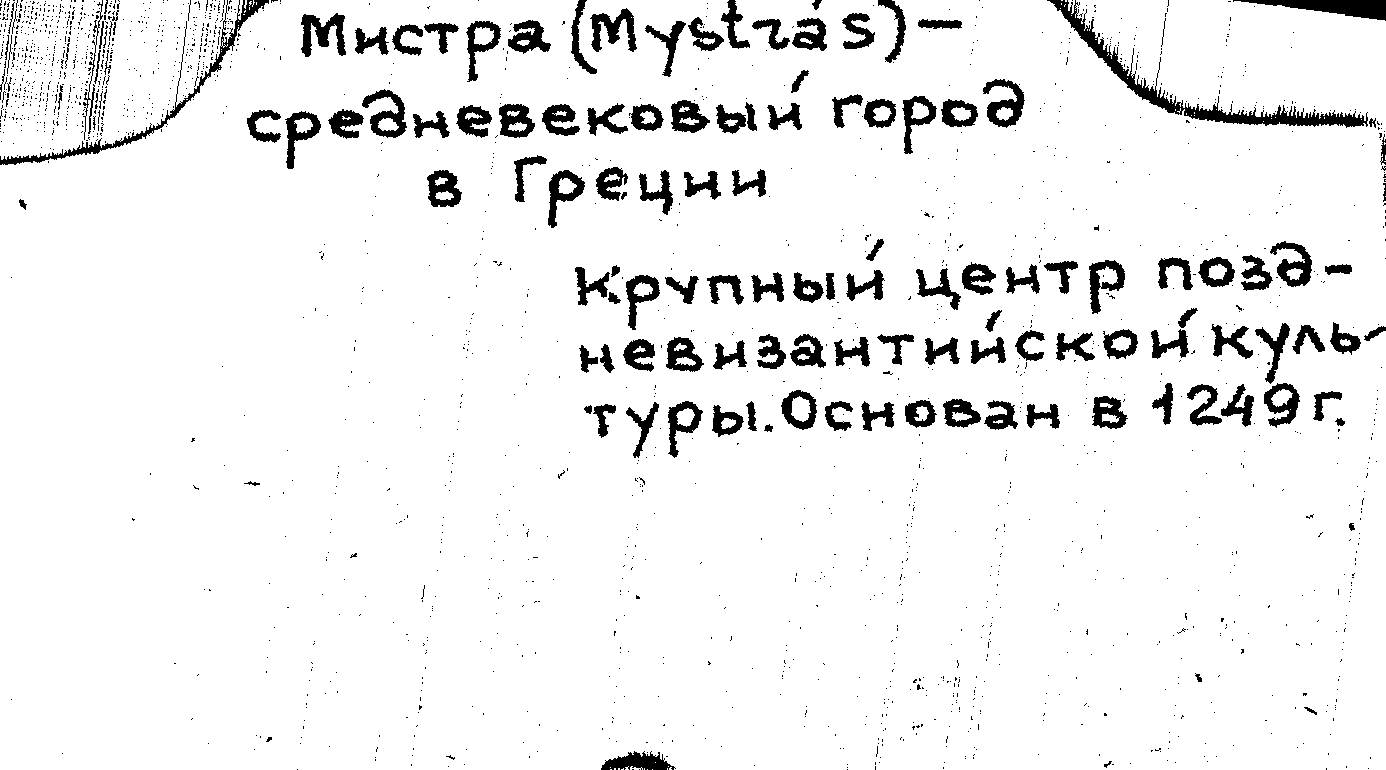 Мистра (Mystrás) —
средневековый город
в Греции
Крупный центр позд-
невизантийской куль-
туры. Основан в 1249 г.